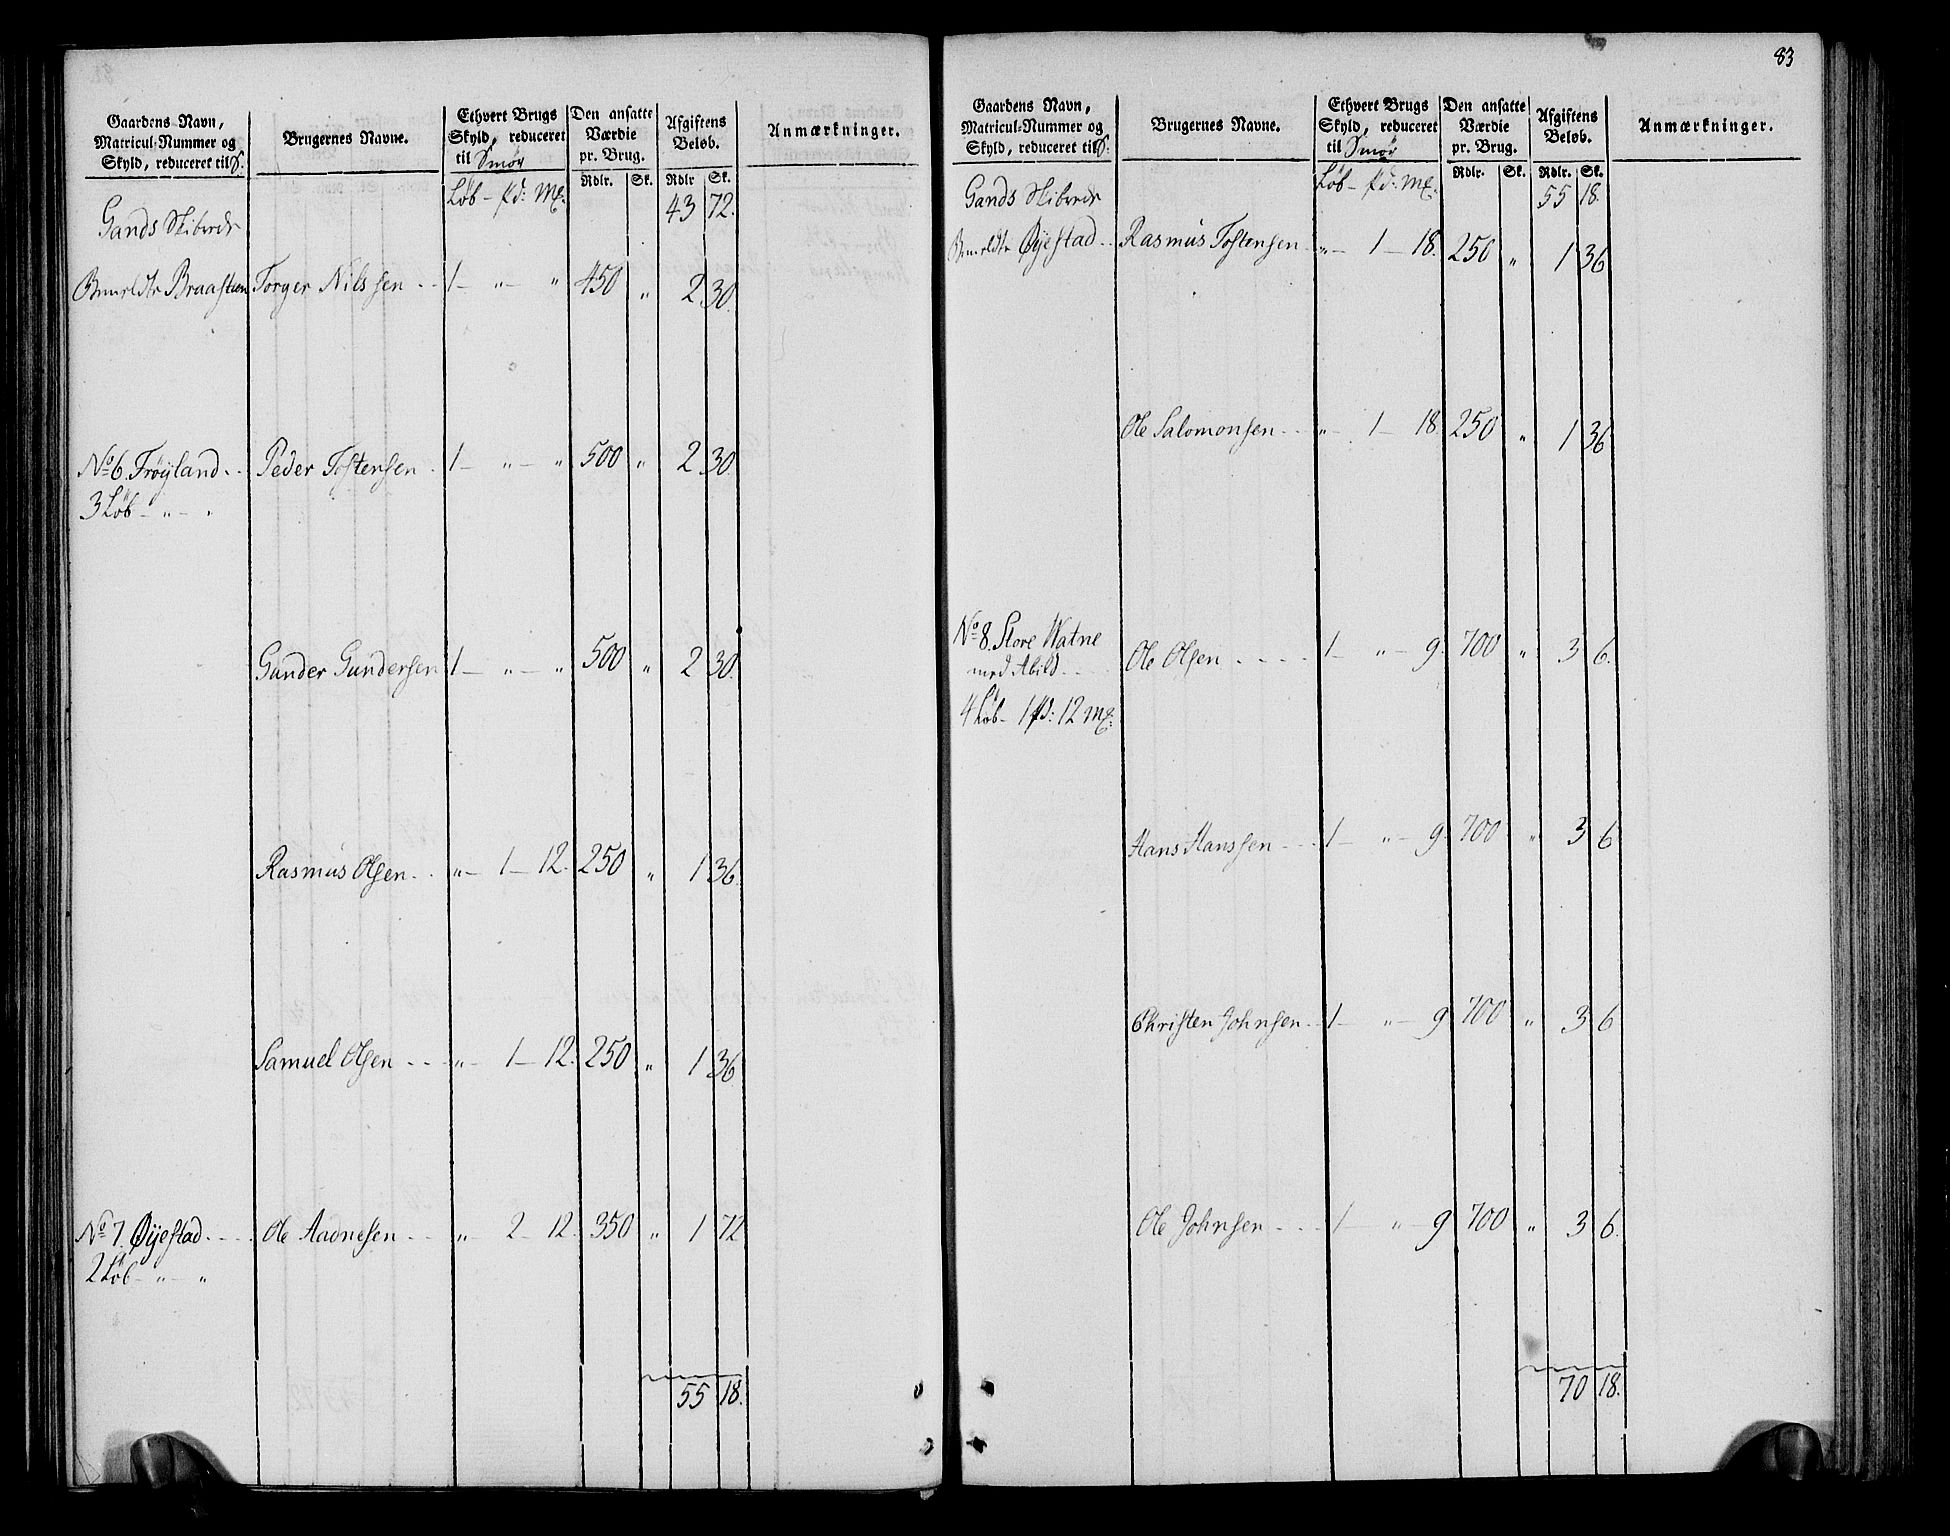 Gaardens Navn,
Matricul-Nummer og
Skyld, reduceret til
Brugernes Navne.
Ethvert Brugs
Skyld, reduceret
til Smør
Den ansatte
Værdie
pr. Brug.
Afgiftens
Beløb.
Anmærkninger.
Rdlr. Sk. Rdlr Sk.
Løb - pd: Mk:
Gands Skibrede 43 72.
Braastien Torger Nilssen - - 1 - „ - „ 450 „ 2 30.
No 6. Frøyland - - Peder Tostensen - 1 - „ - „ 500 „ 2 30.
3 Løb - „ - „
Gunder Gundersen 1 - „ - „ 500 „ 2 30.
Rasmus Olsen - - „ - 1 - 12. 250 „ 1 36.
Samuel Olsen - - - „ - 1 - 12. 250 „ 1 36.
No 7. Øyestad - - - Ole Aadnesen - - - „ 2 - 12. 350 „ 1 72
2 Løb - „ - „
55 18.
83
Gaardens Navn,
Matricul-Nummer og
Skyld, reduceret til
Brugernes Navne.
Ethvert Brugs
Skyld, reduceret
til Smør
Den ansatte
Værdie
pr. Brug.
Afgiftens
Beløb.
Anmærkninger.
Rdlr. Sk. Rdlr. Sk.
Løb - pd: Mk:
Gands Skibrede 55 18.
Øyestad - - Rasmus Tostensen - „ - 1 - 18. 250 „ 1 36
Ole Salomonsen - - „ - 1 - 18. 250 „ 1 36
No 8. Store Watne
med Abild - - Ole Olsen - - - - 1 - „ - 9. 700 „ 3 6.
4 Løb - 1 pd: 12 Mk:
Hans Hanssen - - - 1 - „ - 9. 700 „ 3 6
Christen Johnsen - - 1 - „ - 9 700 „ 3 6
Ole Johnsen - - - 1 - „ - 9 700 „ 3 6.
70 18.